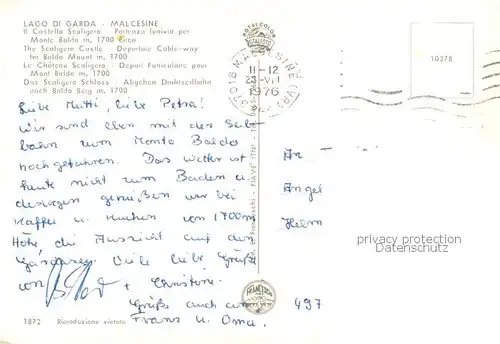 LAGO DI GARDA - MALCESINE
Il Castello Scaligero - Partenza funivia per
Monte Baldo m. 1700 circa
The Scaligero Castle - Departure Cable-way
for Baldo Mount m. 1700
Le Château Scaligero - Depart Funiculaire pour
Mont Baldo m. 1700
Das Scaligero Schloss - Abgehen Drahtseilbahn
nach Baldo Berg m. 1700
MALCESINE (VR)
11-12
23-VII
1976
10278
Liebe Mutti, liebe Petra!
Wir sind eben mit der Seil
bahn zum Monte Baldo
hochgefahren. Das Wetter ist
heute nicht zum Baden u.
deswegen genießen wir bei
Kaffee u. Kuchen von 1700m
Höhe die Aussicht auf den
Gardasee. Viele liebe Grüße
von
+ Christine
Grüße auch an
Franz u. Oma.
An
Angel
Helm
497
privacy protection
Datenschutz
1872 Riproduzione vietata